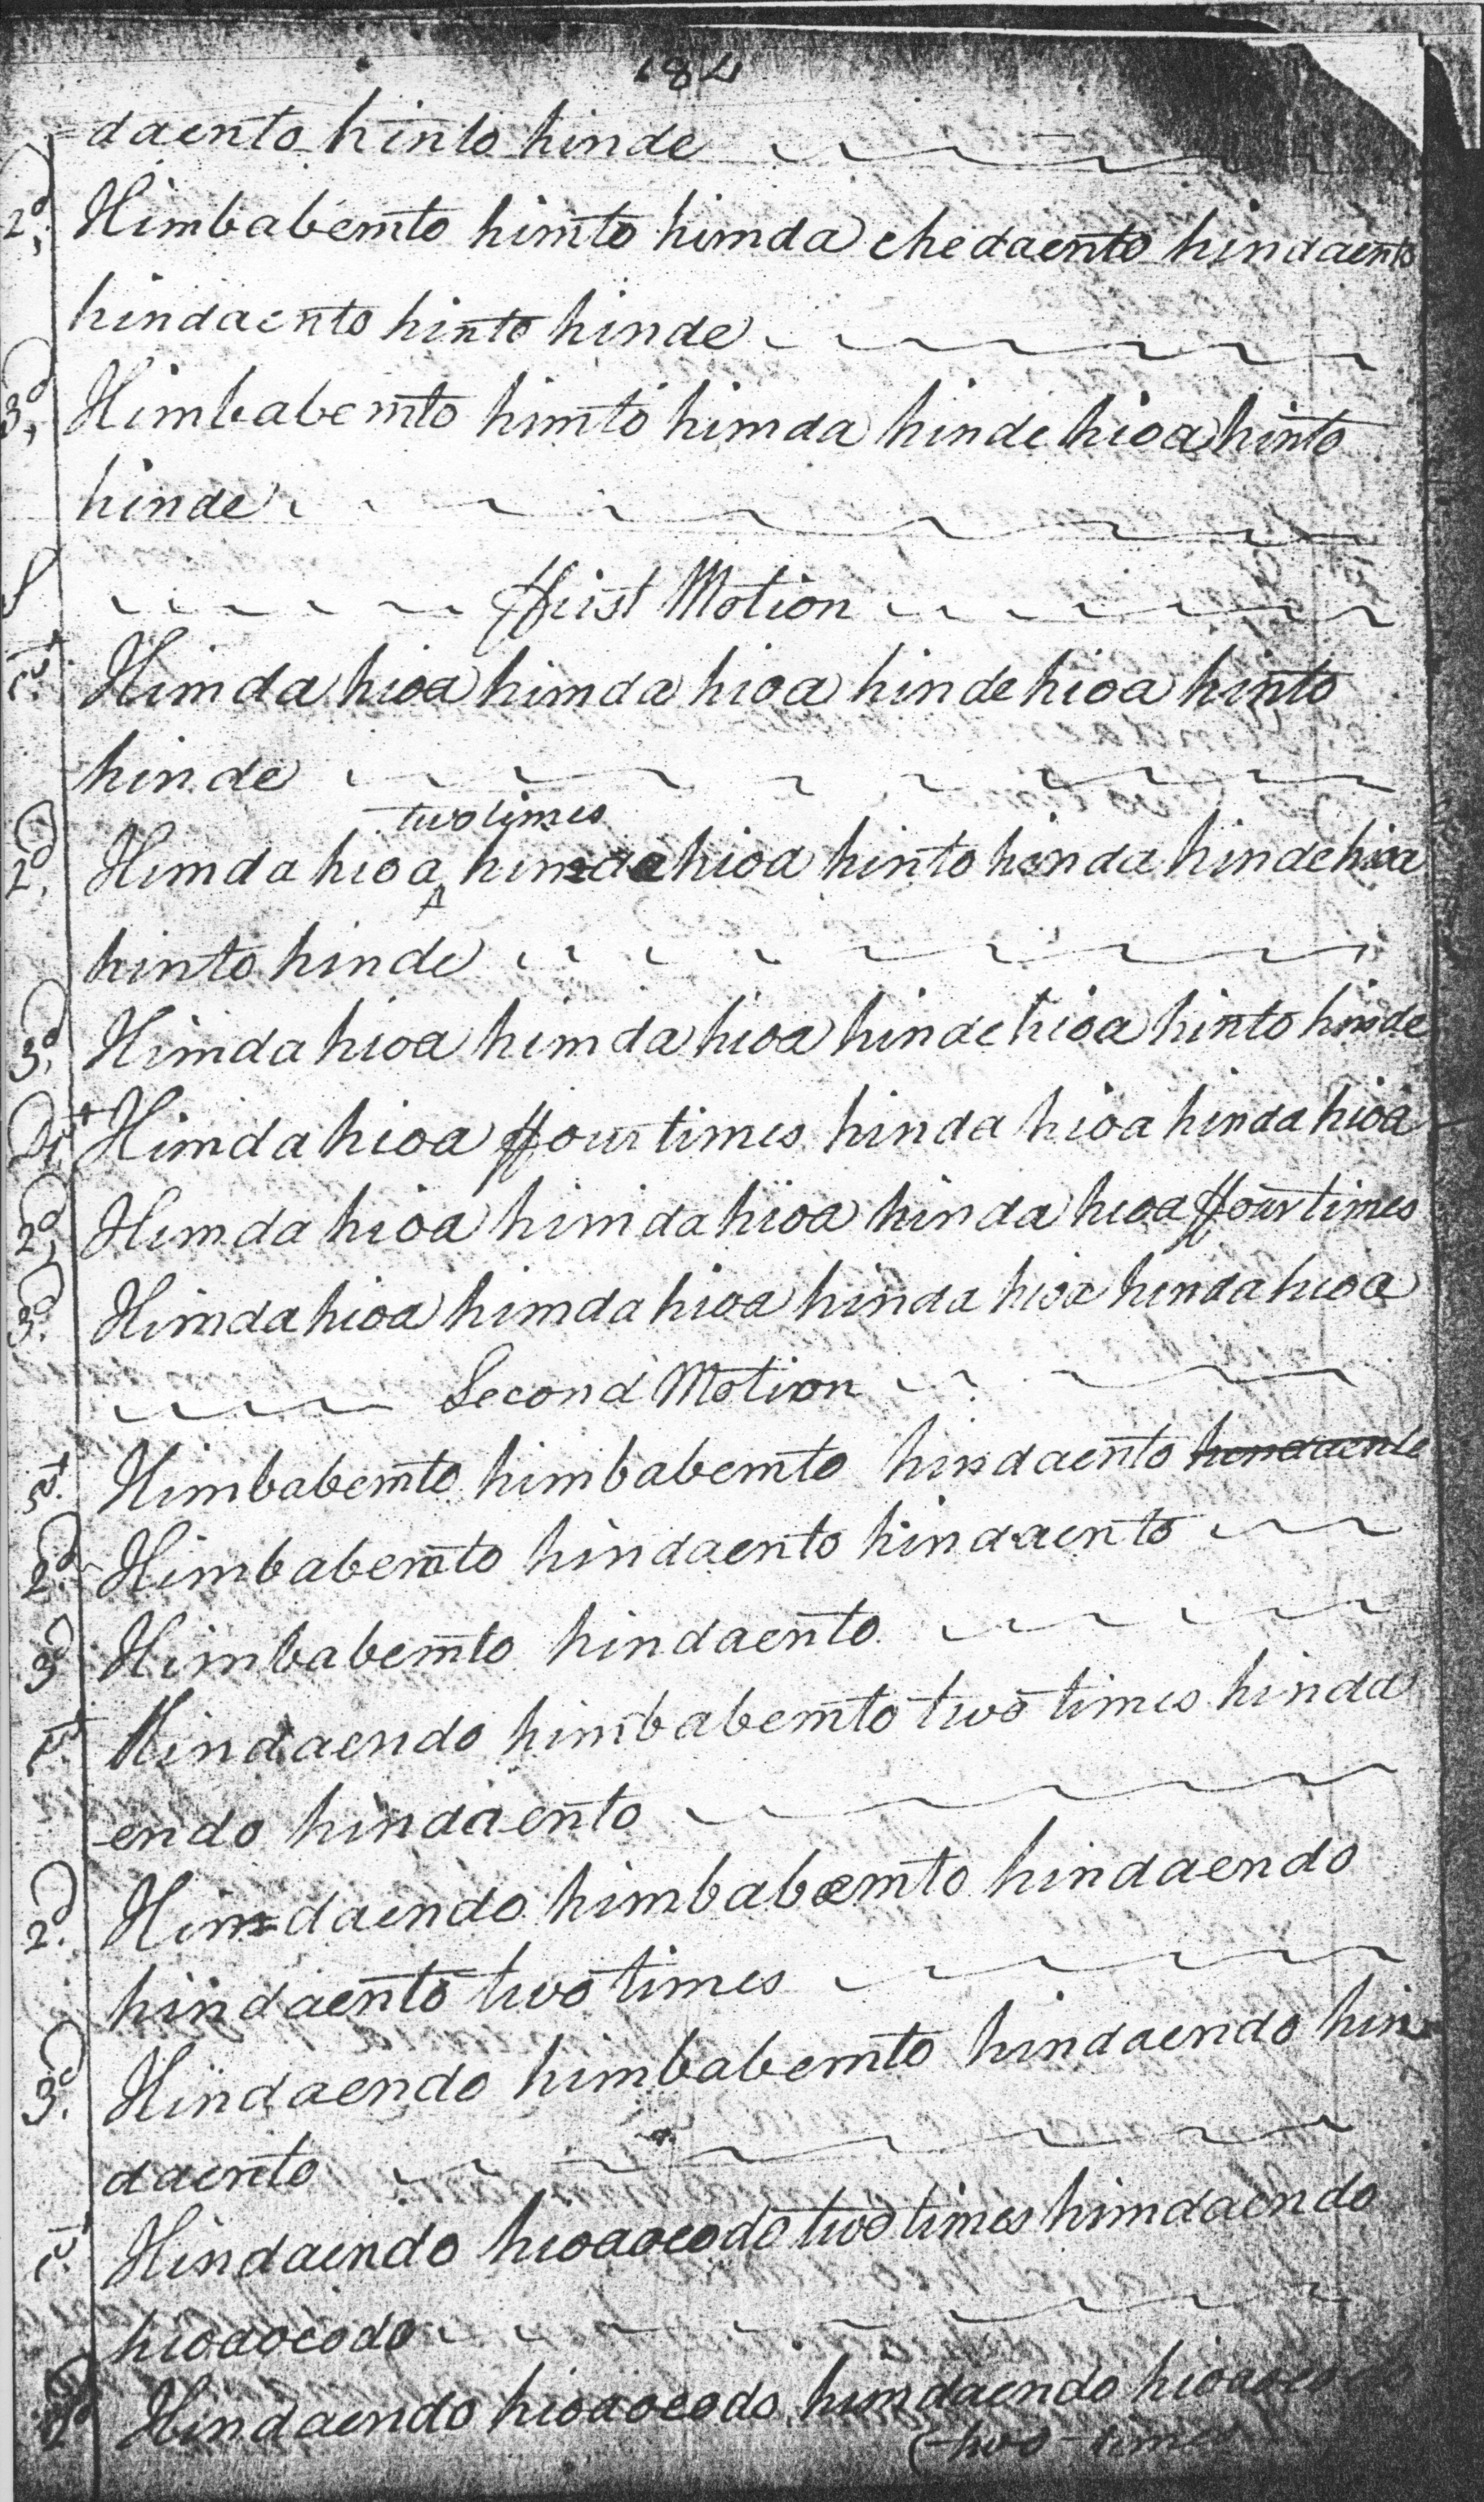 184
daento hinto hinde
2d, Himbabemto himto himda chedaento hindaento
hindaento hinto hinde
3d, Himbabemto himto himda hinde hioa hinto
hinde
ffirst Motion
1st. Himda hioa himda hioa hinde hioa hinto
hinde
two times
2d, Himda hioa ^ himda hioa hinto hinda hinde hioa
hinto hinde
3d, Himda hioa himda hioa hinde hioa hinto hinde
Himda hioa ffour times hinda hioa hinda hioa
2d, Himda hioa himda hioa hinda hioa ffour times
3d. Himda hioa himda hioa hinda hioa hinda hioa
Second Motion
1st. Himbabemto himbabemto hindaento hendaento
2d. Himbabemto hindaento hindaento
3d Himbabemto hindaento
1st. Hindaendo himbabemto two times hinda
endo hindaento
2d. Himdaendo himbabemto hindaendo
hindaento two times
3d. Hindaendo himbabemto hindaendo hin
daento
1st. Hindaendo hioaoeodo two times himdaendo
hioaoeodo
2d Hindaendo hioaoeodo himdaendo
two times